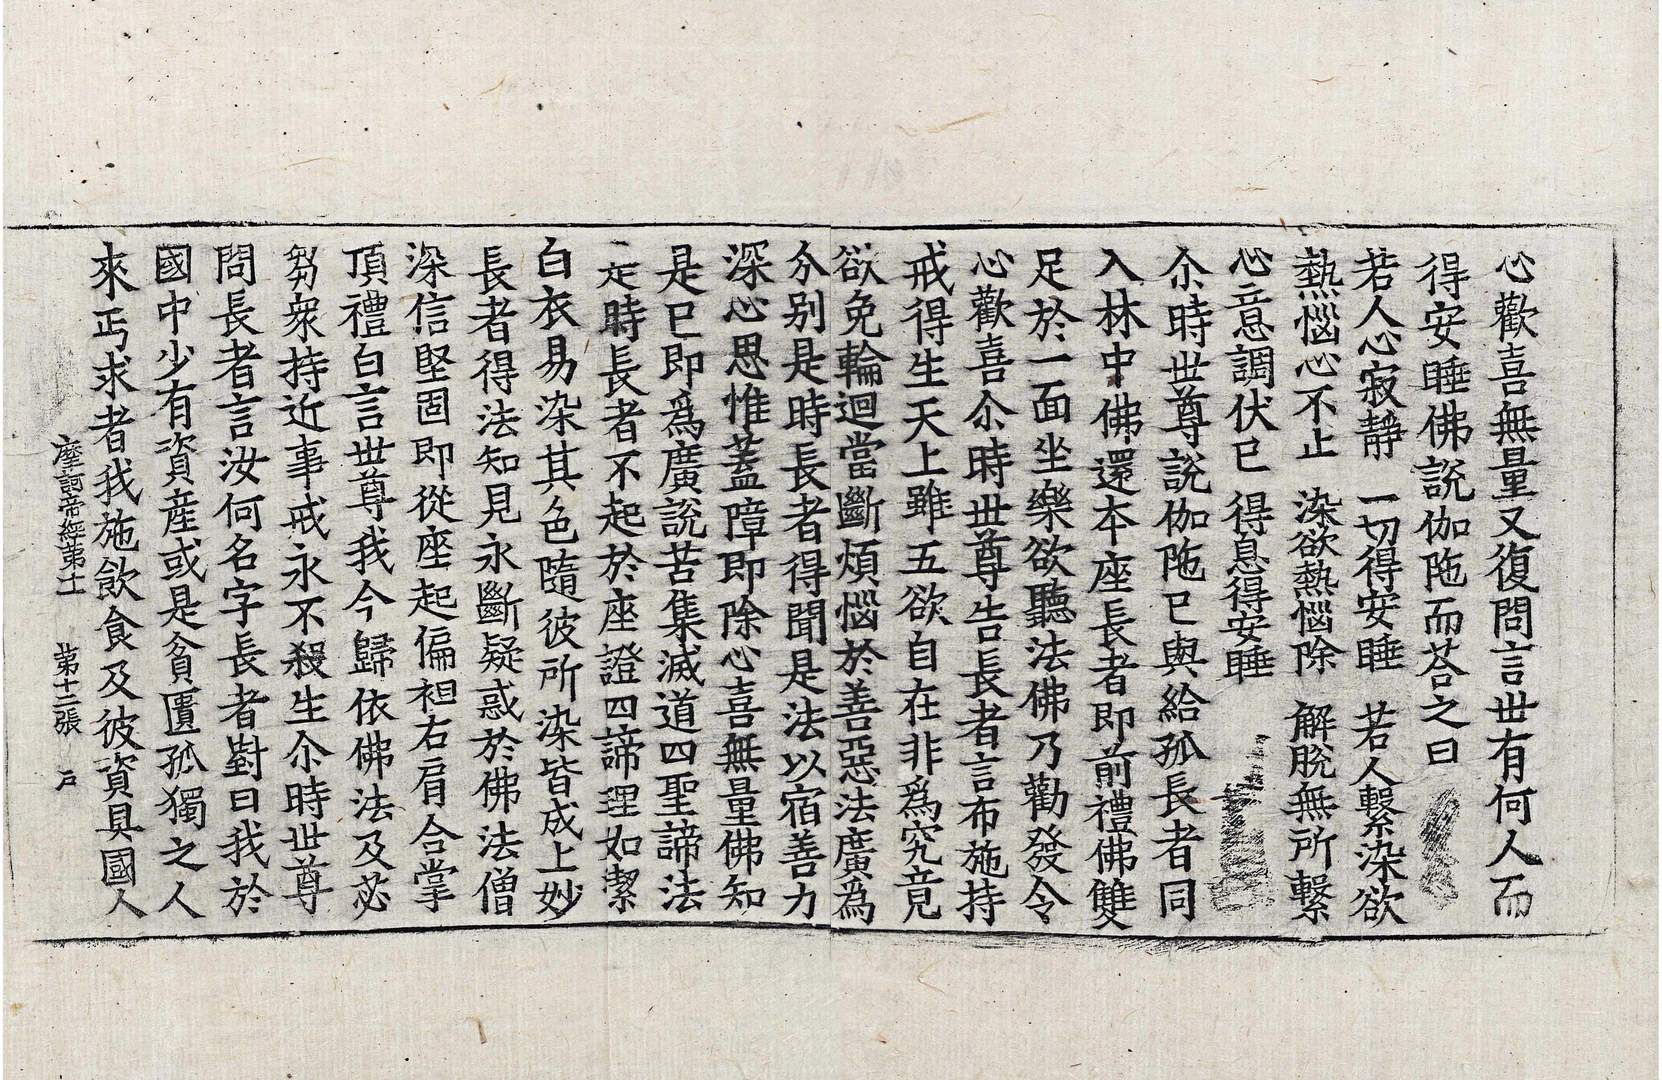 心歡喜無量又復問言世有何人而
得安睡佛說伽陁而荅之曰
若人心寂靜　一切得安睡　若人繫染欲
熱惱心不止　染欲熱惱除　解脫無所繫
心意調伏已　得息得安睡
尒時世尊說伽陁已與給孤長者同
入林中佛還本座長者即前禮佛雙
足於一面坐樂欲聽法佛乃勸發令
心歡喜尒時世尊告長者言布施持
戒得生天上雖五欲自在非爲究竟
欲免輪迴當斷煩惱於善惡法廣爲
分别是時長者得聞是法以宿善力
深心思惟蓋障即除心喜無量佛知
是已即爲廣說苦集滅道四聖諦法
是時長者不起於座證四諦理如潔
白衣易染其色隨彼所染皆成上妙
長者得法知見永斷疑惑於佛法僧
深信堅固即從座起偏袒右肩合掌
頂禮白言世尊我今歸依佛法及苾
芻衆持近事戒永不殺生尒時世尊
問長者言汝何名字長者對曰我於
國中少有資産或是貧匱孤獨之人
來丐求者我施飲食及彼資具國人
摩訶帝經第十一　第十二張　戶